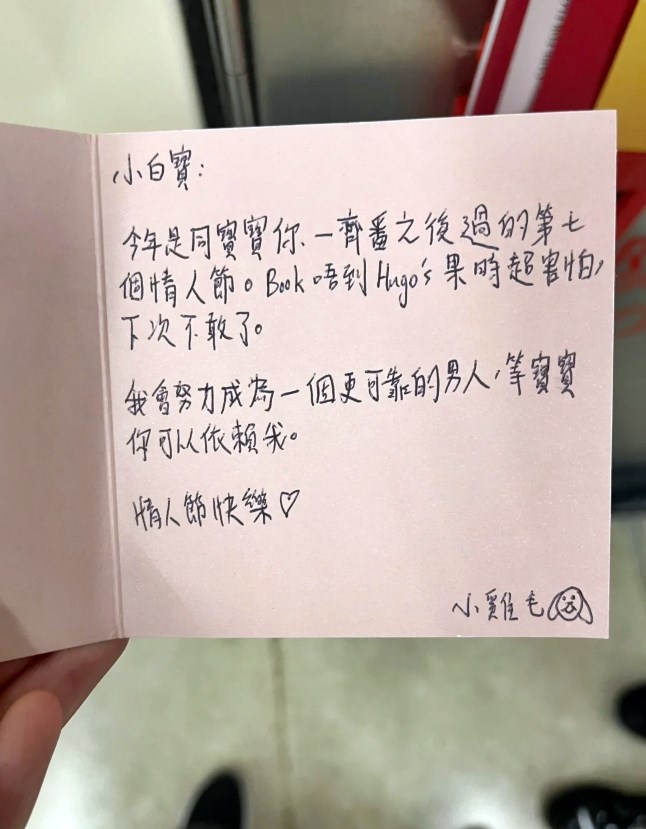 小白寶：
今年是同寶寶你一齊番之後過的第七
個情人節。Book 唔到 Hugo's 果時超害怕，
下次不敢了。
我會努力成為一個更可靠的男人，等寶寶
你可以依賴我。
情人節快樂♡
小雞毛